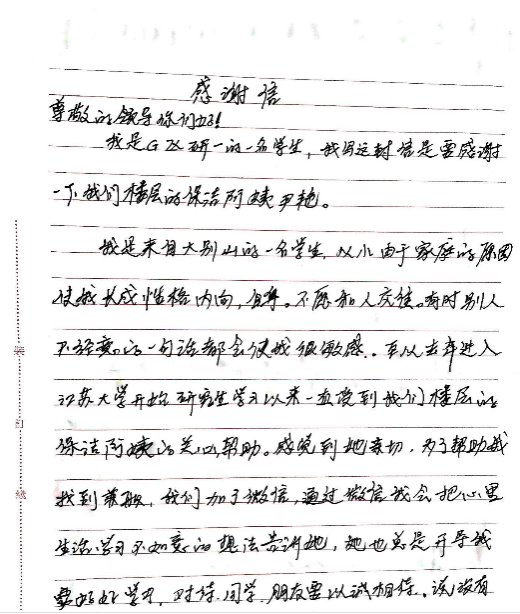 感谢信
尊敬的领导你们好!
我是G区研一的一名学生,我写这封信是要感谢
一下我们楼层的保洁阿姨尹艳。
我是来自大别山的一名学生,从小由于家庭的原因
使我长成性格内向,自卑。不愿和人交往。有时别人
不经意的一句话都会使我很敏感。自从去年进入
江苏大学开始研究生学习以来一直受到我们楼层的
保洁阿姨的关心帮助。感觉到她亲切,为了帮助我
找到兼职,我们加了微信,通过微信我会把心里
生活学习不如意的想法告诉她,她也总是开导我
要好好学习,对待同学朋友要以诚相待。说没有
装
订
线